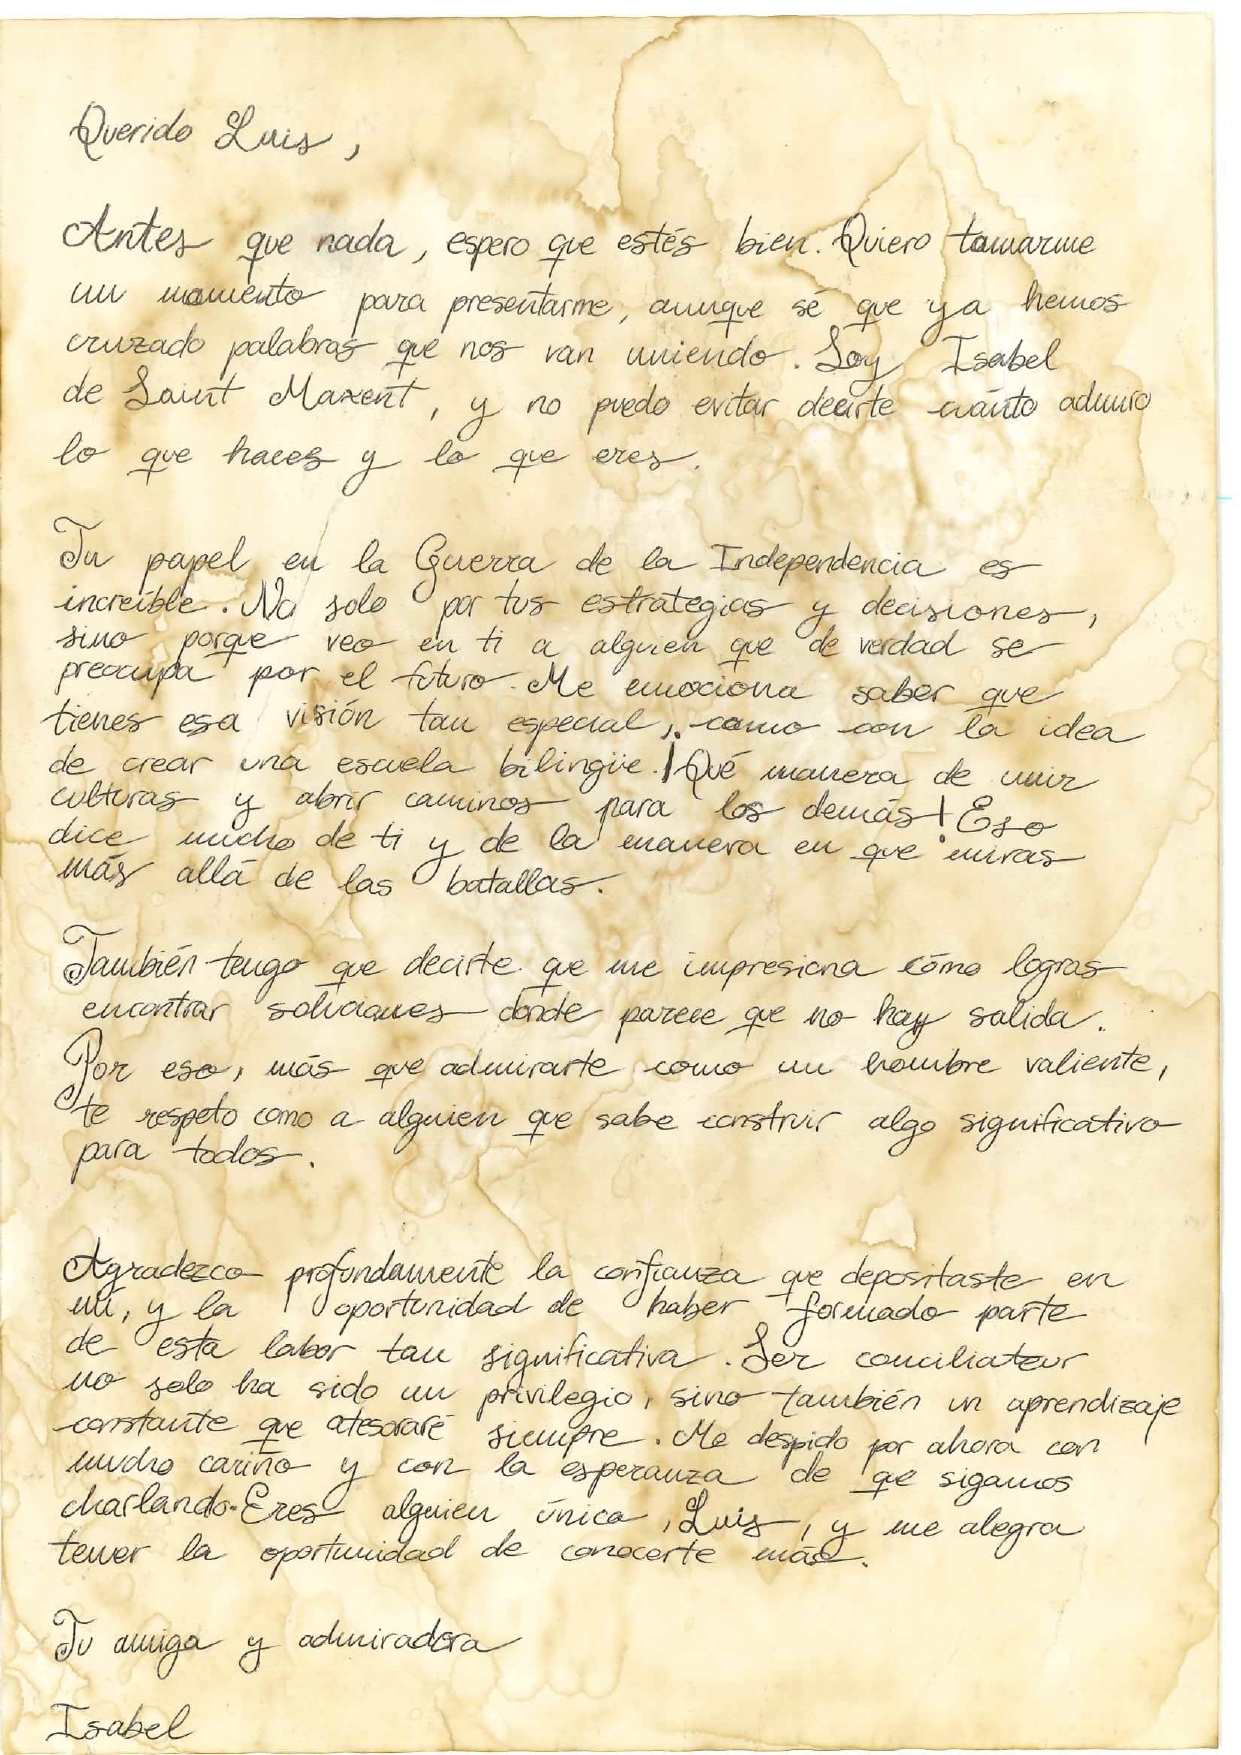 Querido Luis,
Antes que nada, espero que estés bien. Quiero tomarme
un momento para presentarme, aunque sé que ya hemos
cruzado palabras que nos van uniendo. Soy Isabel
de Saint Maxent, y no puedo evitar decirte cuánto admiro
lo que haces y lo que eres.
Tu papel en la Guerra de la Independencia es
increíble. No solo por tus estrategias y decisiones,
sino porque veo en ti a alguien que de verdad se
preocupa por el futuro. Me emociona saber que
tienes esa visión tan especial, como con la idea
de crear una escuela bilingüe. ¡Qué manera de unir
culturas y abrir caminos para los demás! Eso
dice mucho de ti y de la manera en que miras
más allá de las batallas.
También tengo que decirte que me impresiona cómo logras
encontrar soluciones donde parece que no hay salida.
Por eso, más que admirarte como un hombre valiente,
te respeto como a alguien que sabe construir algo significativo
para todos.
Agradezco profundamente la confianza que depositaste en
mí, y la oportunidad de haber formado parte
de esta labor tan significativa. Ser conciliateur
no solo ha sido un privilegio, sino también un aprendizaje
constante que atesoraré siempre. Me despido por ahora con
mucho cariño y con la esperanza de que sigamos
charlando. Eres alguien único, Luis, y me alegra
tener la oportunidad de conocerte más.
Tu amiga y admiradora
Isabel